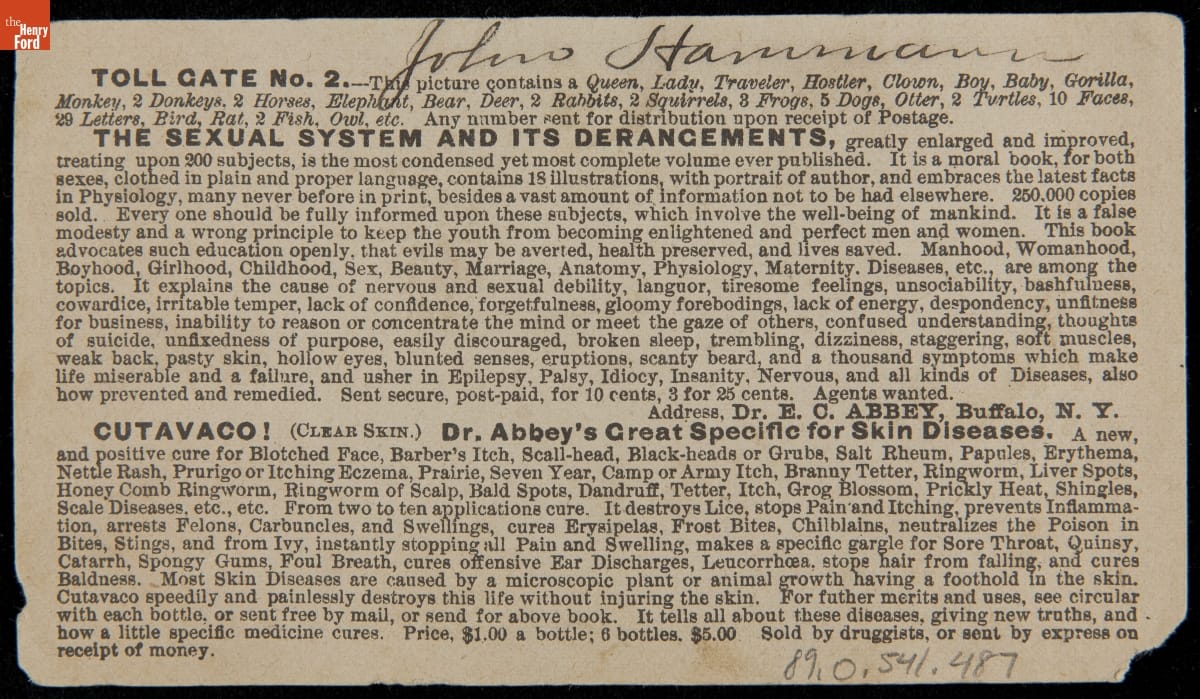 the
Henry
Ford
John Hammann
TOLL GATE No. 2.—This picture contains a Queen, Lady, Traveler, Hostler, Clown, Boy, Baby, Gorilla,
Monkey, 2 Donkeys, 2 Horses, Elephant, Bear, Deer, 2 Rabbits, 2 Squirrels, 3 Frogs, 5 Dogs, Otter, 2 Turtles, 10 Faces,
29 Letters, Bird, Rat, 2 Fish, Owl, etc. Any number sent for distribution upon receipt of Postage.
THE SEXUAL SYSTEM AND ITS DERANGEMENTS, greatly enlarged and improved,
treating upon 200 subjects, is the most condensed yet most complete volume ever published. It is a moral book, for both
sexes, clothed in plain and proper language, contains 18 illustrations, with portrait of author, and embraces the latest facts
in Physiology, many never before in print, besides a vast amount of information not to be had elsewhere. 250.000 copies
sold. Every one should be fully informed upon these subjects, which involve the well-being of mankind. It is a false
modesty and a wrong principle to keep the youth from becoming enlightened and perfect men and women. This book
advocates such education openly, that evils may be averted, health preserved, and lives saved. Manhood, Womanhood,
Boyhood, Girlhood, Childhood, Sex, Beauty, Marriage, Anatomy, Physiology, Maternity. Diseases, etc., are among the
topics. It explains the cause of nervous and sexual debility, languor, tiresome feelings, unsociability, bashfulness,
cowardice, irritable temper, lack of confidence, forgetfulness, gloomy forebodings, lack of energy, despondency, unfitness
for business, inability to reason or concentrate the mind or meet the gaze of others, confused understanding, thoughts
of suicide, unfixedness of purpose, easily discouraged, broken sleep, trembling, dizziness, staggering, soft muscles,
weak back, pasty skin, hollow eyes, blunted senses, eruptions, scanty beard, and a thousand symptoms which make
life miserable and a failure, and usher in Epilepsy, Palsy, Idiocy, Insanity, Nervous, and all kinds of Diseases, also
how prevented and remedied. Sent secure, post-paid, for 10 cents, 3 for 25 cents. Agents wanted.
Address, Dr. E. C. ABBEY, Buffalo, N. Y.
CUTAVACO! (CLEAR SKIN.) Dr. Abbey's Great Specific for Skin Diseases. A new,
and positive cure for Blotched Face, Barber's Itch, Scall-head, Black-heads or Grubs, Salt Rheum, Papules, Erythema,
Nettle Rash, Prurigo or Itching Eczema, Prairie, Seven Year, Camp or Army Itch, Branny Tetter, Ringworm, Liver Spots,
Honey Comb Ringworm, Ringworm of Scalp, Bald Spots, Dandruff, Tetter, Itch, Grog Blossom, Prickly Heat, Shingles,
Scale Diseases, etc., etc. From two to ten applications cure. It destroys Lice, stops Pain and Itching, prevents Inflamma-
tion, arrests Felons, Carbuncles, and Swellings, cures Erysipelas, Frost Bites, Chilblains, neutralizes the Poison in
Bites, Stings, and from Ivy, instantly stopping all Pain and Swelling, makes a specific gargle for Sore Throat, Quinsy,
Catarrh, Spongy Gums, Foul Breath, cures offensive Ear Discharges, Leucorrhœa, stops hair from falling, and cures
Baldness. Most Skin Diseases are caused by a microscopic plant or animal growth having a foothold in the skin.
Cutavaco speedily and painlessly destroys this life without injuring the skin. For futher merits and uses, see circular
with each bottle, or sent free by mail, or send for above book. It tells all about these diseases, giving new truths, and
how a little specific medicine cures. Price, $1.00 a bottle; 6 bottles. $5.00 Sold by druggists, or sent by express on
receipt of money.
89.0.541.487